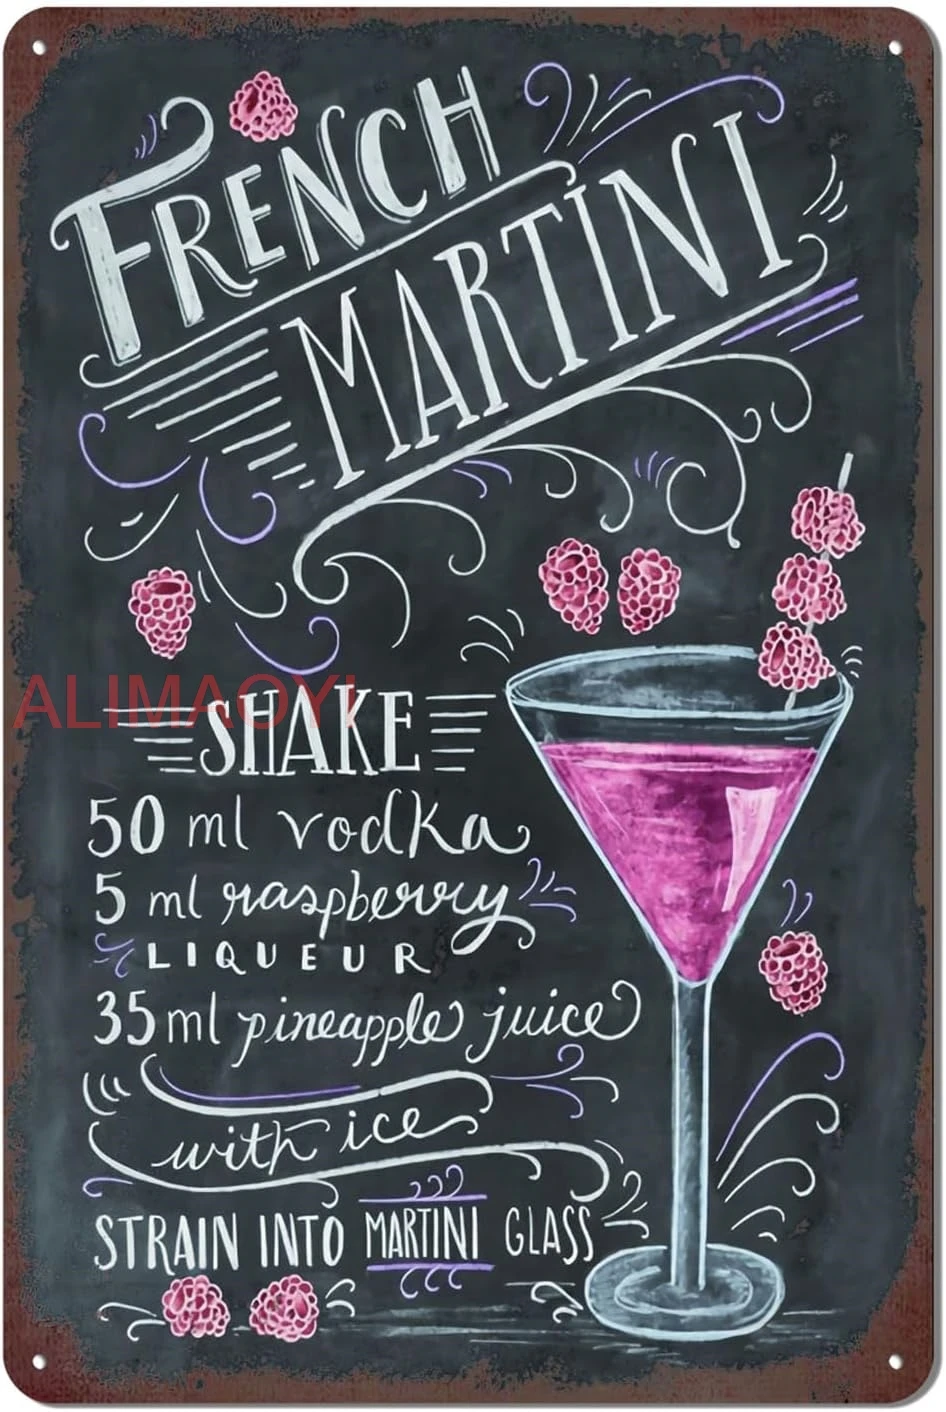 FRENCH
MARTINI
ALIMAOYI
SHAKE
50 ml vodka
5 ml raspberry
LIQUEUR
35 ml pineapple juice
with ice
STRAIN INTO MARTINI GLASS